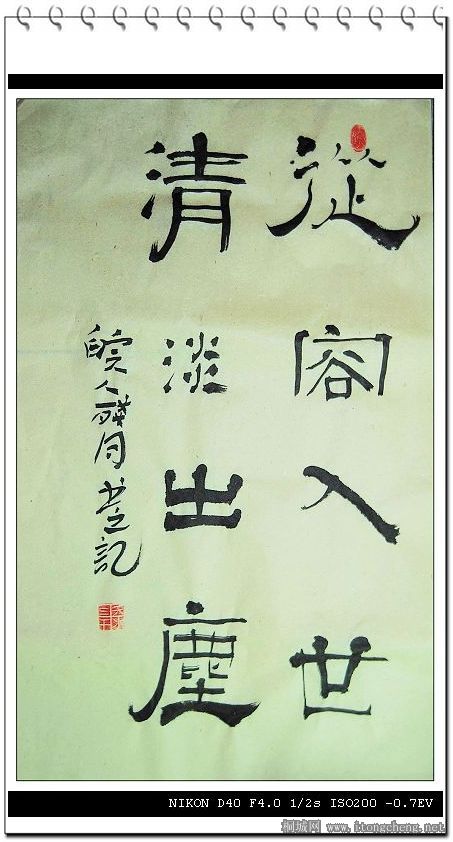 從容入世
清淡出塵
皖人
書記
NIKON D40 F4.0 1/2s ISO200 -0.7EV
桐城网 www.itongcheng.net